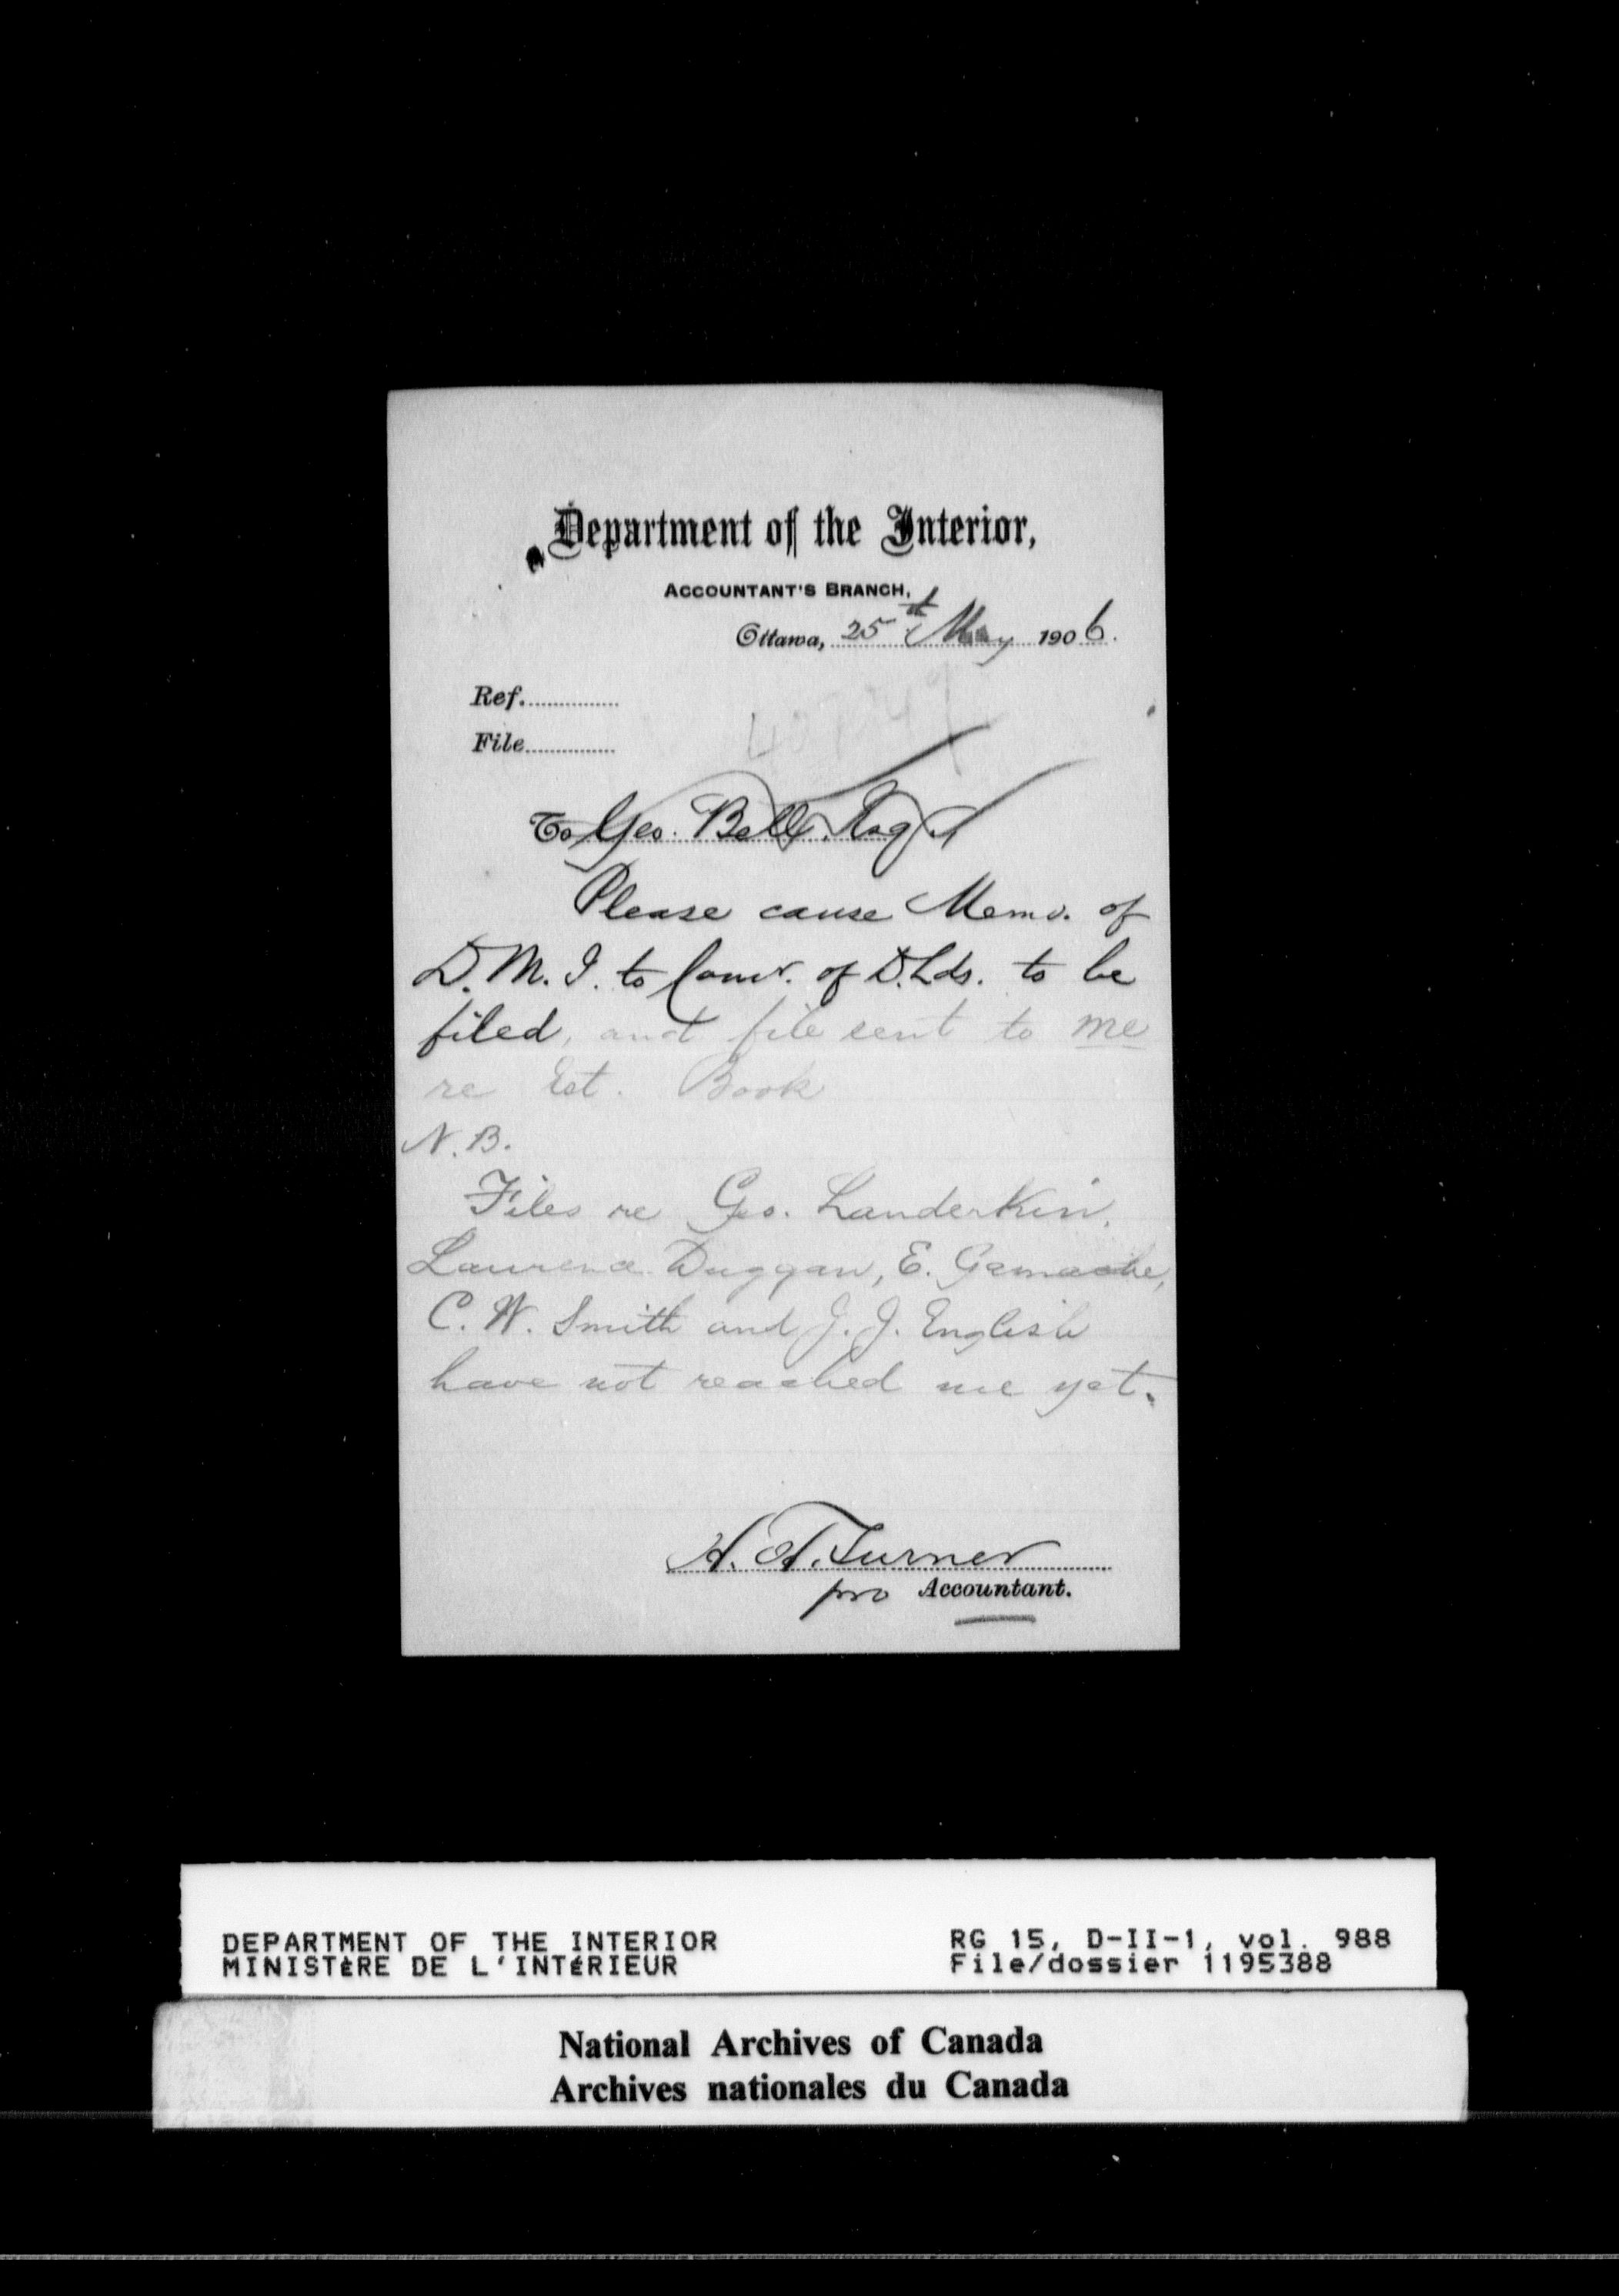 Department of the Interior,
ACCOUNTANT'S BRANCH,
Ottawa, 25th May 1906.
Ref.
File
To Geo. Bell,
Please cause Memo. of
D. M. I. to Comr. of D. Lds. to be
filed, and file sent to me
re Est. Book
N.B.
Files re Geo. Landerkin,
Laurence Duggan, E. Gamache,
C. W. Smith and J. J. English
have not reached me yet.
H. A. Turner
pro Accountant.
DEPARTMENT OF THE INTERIOR
MINISTÈRE DE L'INTÉRIEUR
RG 15, D-II-1, vol. 988
File/dossier 1195388
National Archives of Canada
Archives nationales du Canada